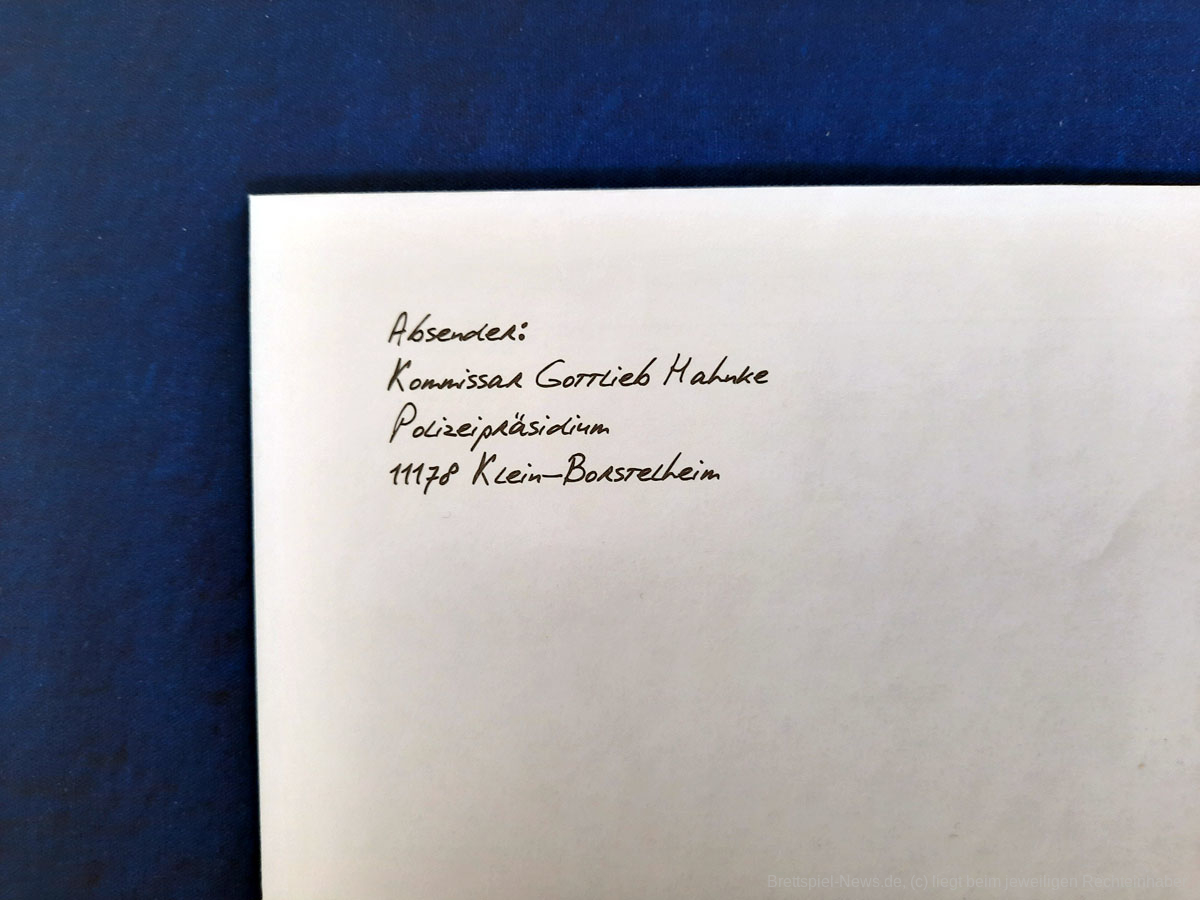 Absender:
Kommissar Gottlieb Mahnke
Polizeipräsidium
11178 Klein-Borstelheim
Brettspiel-News.de, (c) liegt beim jeweiligen Rechteinhaber